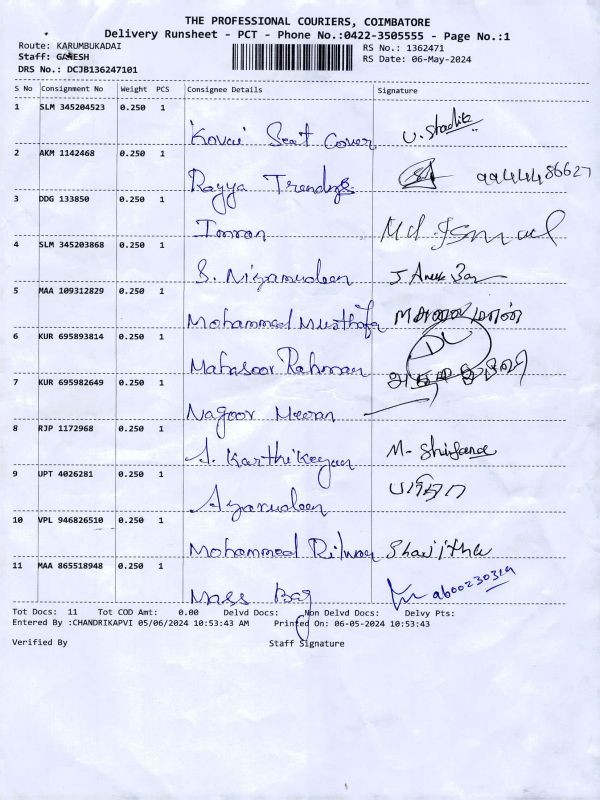 THE PROFESSIONAL COURIERS, COIMBATORE
Delivery Runsheet - PCT - Phone No.:0422-3505555 - Page No.:1
Route: KARUMBUKADAI
RS No.: 1362471
Staff: GANESH
RS Date: 06-May-2024
DRS No.: DCJB136247101
S No Consignment No Weight PCS Consignee Details Signature
1 SLM 345204523 0.250 1
Kovai Seat Cover
2 AKM 1142468 0.250 1
Rayya Trendys 9944486627
3 DDG 133850 0.250 1
Imran Md Ismael
4 SLM 345203868 0.250 1
S. Nizamudeen
5 MAA 109312829 0.250 1
Mohammed Musthafa
6 KUR 695893814 0.250 1
Mahasoor Rahman
7 KUR 695982649 0.250 1
Nagoor Meeran
8 RJP 1172968 0.250 1
A. Karthikeyan M- Shifana
9 UPT 4026281 0.250 1
Azarudeen
10 VPL 946826510 0.250 1
Mohammed Rilwan Shajitha
11 MAA 865518948 0.250 1
Mass Bag
Tot Docs: 11 Tot COD Amt: 0.00 Delvd Docs: Non Delvd Docs: Delvy Pts:
Entered By :CHANDRIKAPVI 05/06/2024 10:53:43 AM Printed On: 06-05-2024 10:53:43
Verified By Staff Signature